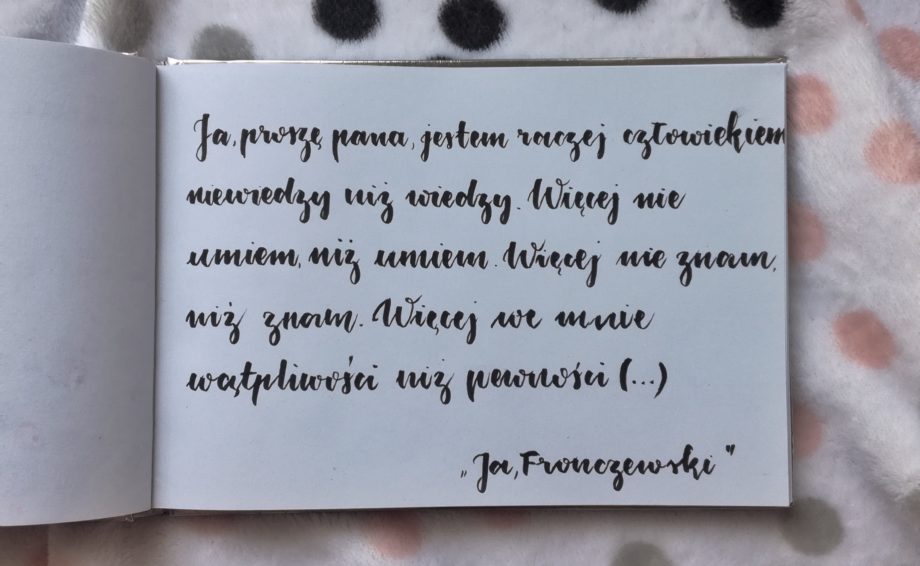 Ja, proszę pana, jestem raczej człowiekiem
niewiedzy niż wiedzy. Więcej nie
umiem, niż umiem. Więcej nie znam,
niż znam. Więcej we mnie
wątpliwości niż pewności (...)
„Ja, Fronczewski"